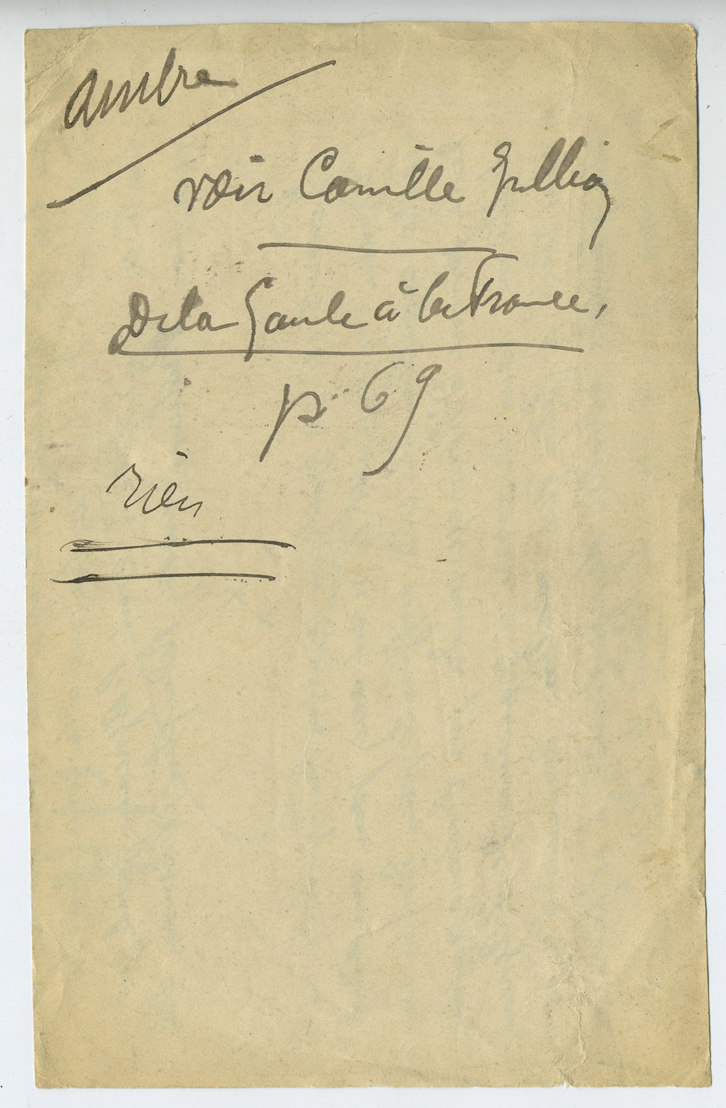 ambre
voir Camille Jullian
De la Gaule à la France,
p. 69
rien